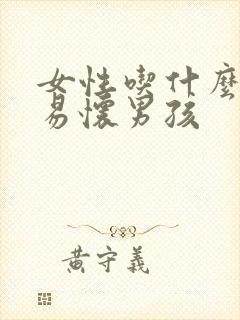 女性喫什麼
易懷男孩
黃守義